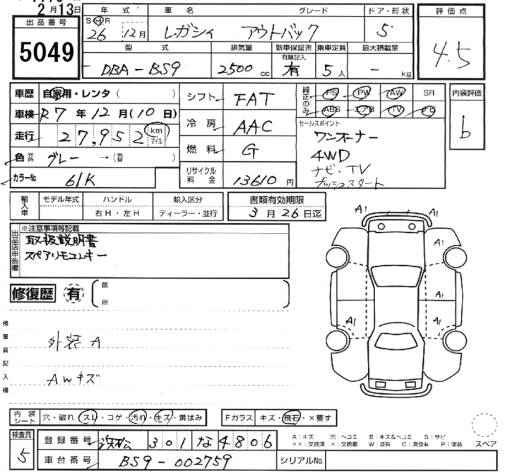 2月13日
出品番号
5049
年式
S H R
26 12月
車名
レガシィ アウトバック
グレード
ドア・形状
5
評価点
4.5
型式
DBA-BS9
排気量
2500 cc
新車保証書
有無記入
有
乗車定員
5 人
最大積載量
- kg
車歴
自家用・レンタ( )
車検
R7年12月(10日)
走行
27,952 km マイル
色
グレー → (替 )
カラーNo
61K
シフト FAT
冷房 AAC
燃料 G
リサイクル料金
13610円
純正のみ
PS PW AW SR
ABS エアB TV 革
セールスポイント
ワンオーナー
4WD
ナビ、TV
プッシュスタート
内装評価
b
輸入車
モデル年式
ハンドル
右H・左H
輸入区分
ディーラー・並行
書類有効期限
3月26日迄
出品店申告欄
※注意事項等記載
取扱説明書
スペアリモコンキー
修復歴 有
箇所
検査員記入欄
外装 A
AWキズ
A1
A1
A1
A1
内装シート
穴・破れ・スレ・コゲ・汚れ・キズ・黄ばみ
Fガラス キズ・飛石・×要す
検査員
5
登録番号
浜松 301 な 4806
車台番号
BS9-002759
シリアルNo.
A:キズ U:ヘコミ B:キズ&ヘコミ S:サビ
××:交換済 ×:交換要 W:波有 C:腐食有 P:塗装
スペア